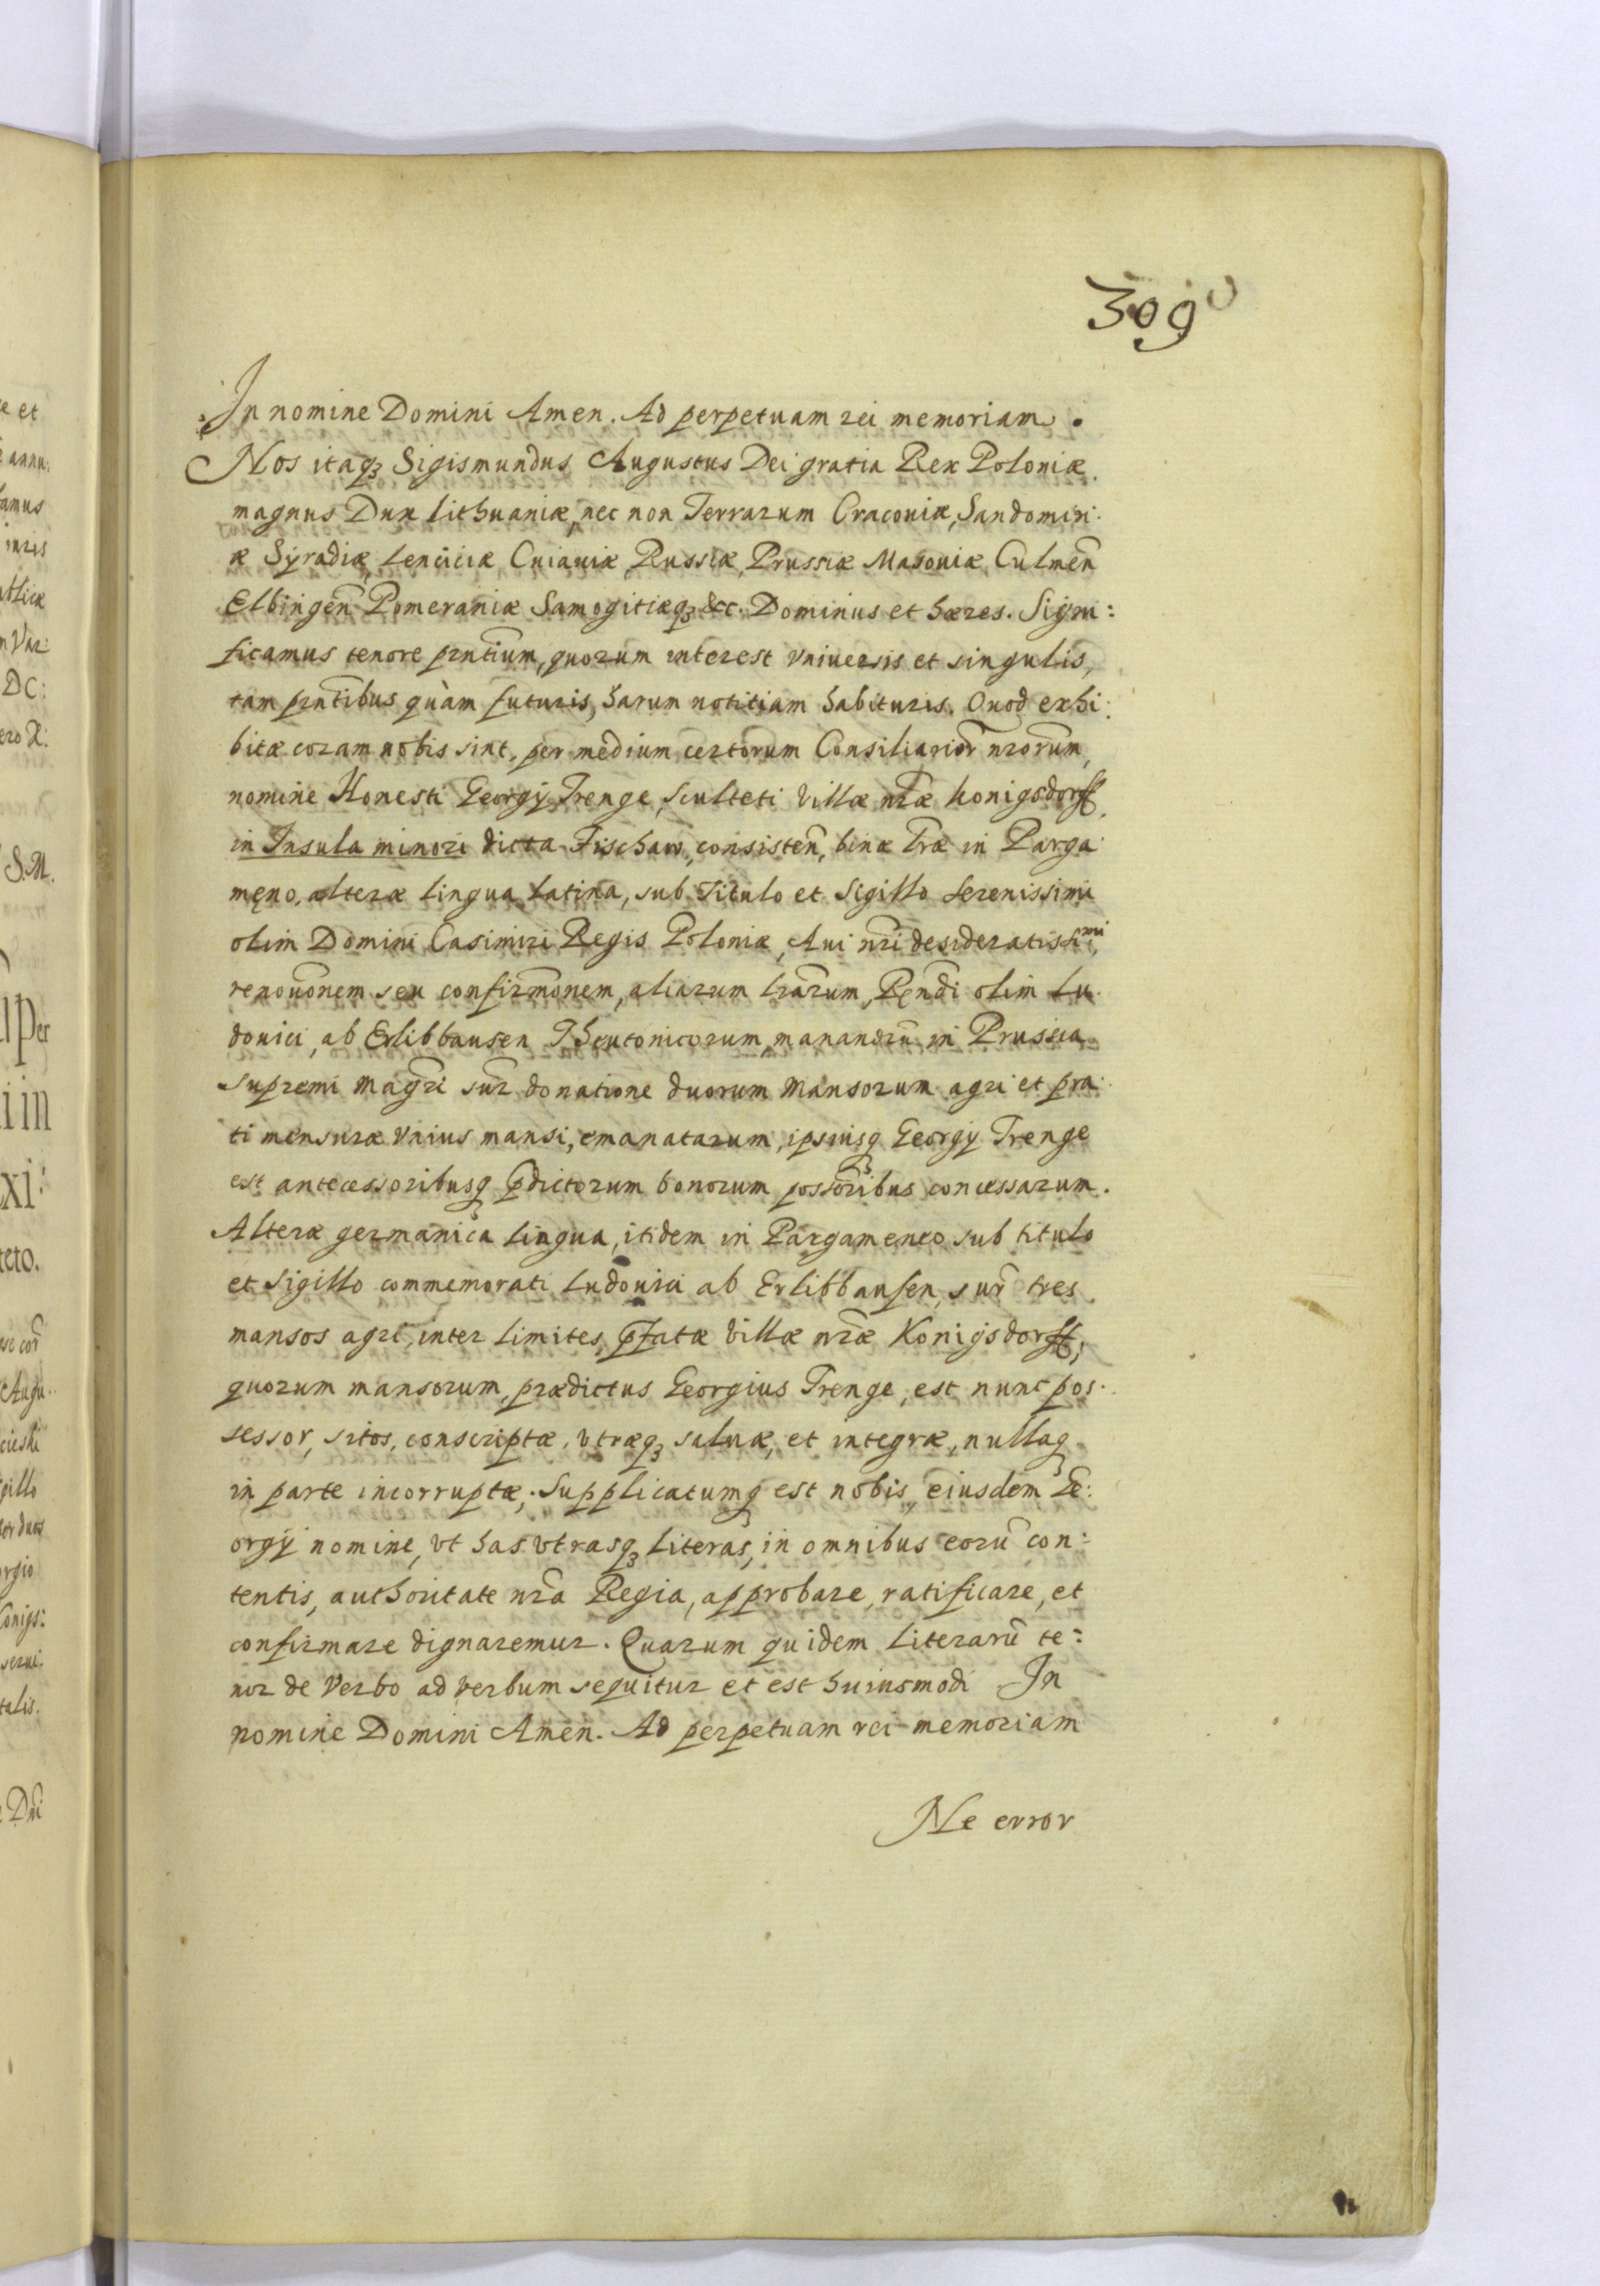 309
In nomine Domini Amen. Ad perpetuam rei memoriam.
Nos itaqꝫ Sigismundus Augustus Dei gratia Rex Poloniæ
magnus Dux Lithuaniæ, nec non Terrarum Cracouiæ, Sandomiri-
æ Syradiæ, Lenciciæ Cuiauiæ, Russiæ, Prussiæ Masouiæ Culmeñ
Elbingeñ Pomeraniæ Samogitiæqꝫ &c. Dominus et hæres. Signi:
ficamus tenore pr̃ntium, quorum interest vniuersis et singulis,
tam pr̃ntibus quàm futuris, harum notitiam habituris. Quod exhi:
bitæ coram nobis sint, per medium certorum Consiliarior̃ nr̃orum,
nomine Honesti Georgy Trenge, Sculteti Villæ nr̃æ Konigsdorff
in Insula minori dicta Fischaw, consisteñ, binæ lr̃æ in Parga-
meno, alteræ lingua Latina, sub Titulo et Sigillo Serenissimi
olim Domini Casimiri Regis Poloniæ, Aui nr̃i desideratissimi,
renouõnem seu confirmõnem, aliarum lr̃arum, Rẽndi olim Lu-
douici, ab Erlibhausen Theutonicorum, manandrũ in Prussia
Supremi Magr̃i sur̃ donatione duorum Mansorum agri et pra-
ti mensuræ vnius mansi, emanatarum, ipsiusq Georgy Trenge
est antecessoribusq p̃dictorum bonorum possoribus concessarum.
Alteræ germanica lingua, itidem in Pargameneo sub titulo
et Sigillo commemorati Ludouici ab Erlibhausen, sur̃ tres
mansos agri, inter limites, p̃fatæ Villæ nr̃æ Konigsdorff,
quorum mansorum, prædictus Georgius Trenge, est nunc pos-
sessor, sitos, conscriptæ, vtræqꝫ saluæ, et integræ, nullaq
in parte incorruptæ, Supplicatumq est nobis, eiusdem Ge:
orgy nomine, vt has vtrasqꝫ Literas, in omnibus eorũ con:
tentis, authoritate nr̃a Regia, approbare, ratificare, et
confirmare dignaremur. Quarum quidem Literarũ te:
nor de Verbo ad verbum sequitur et est huiusmodi In
nomine Domini Amen. Ad perpetuam rei memoriam
Ne error